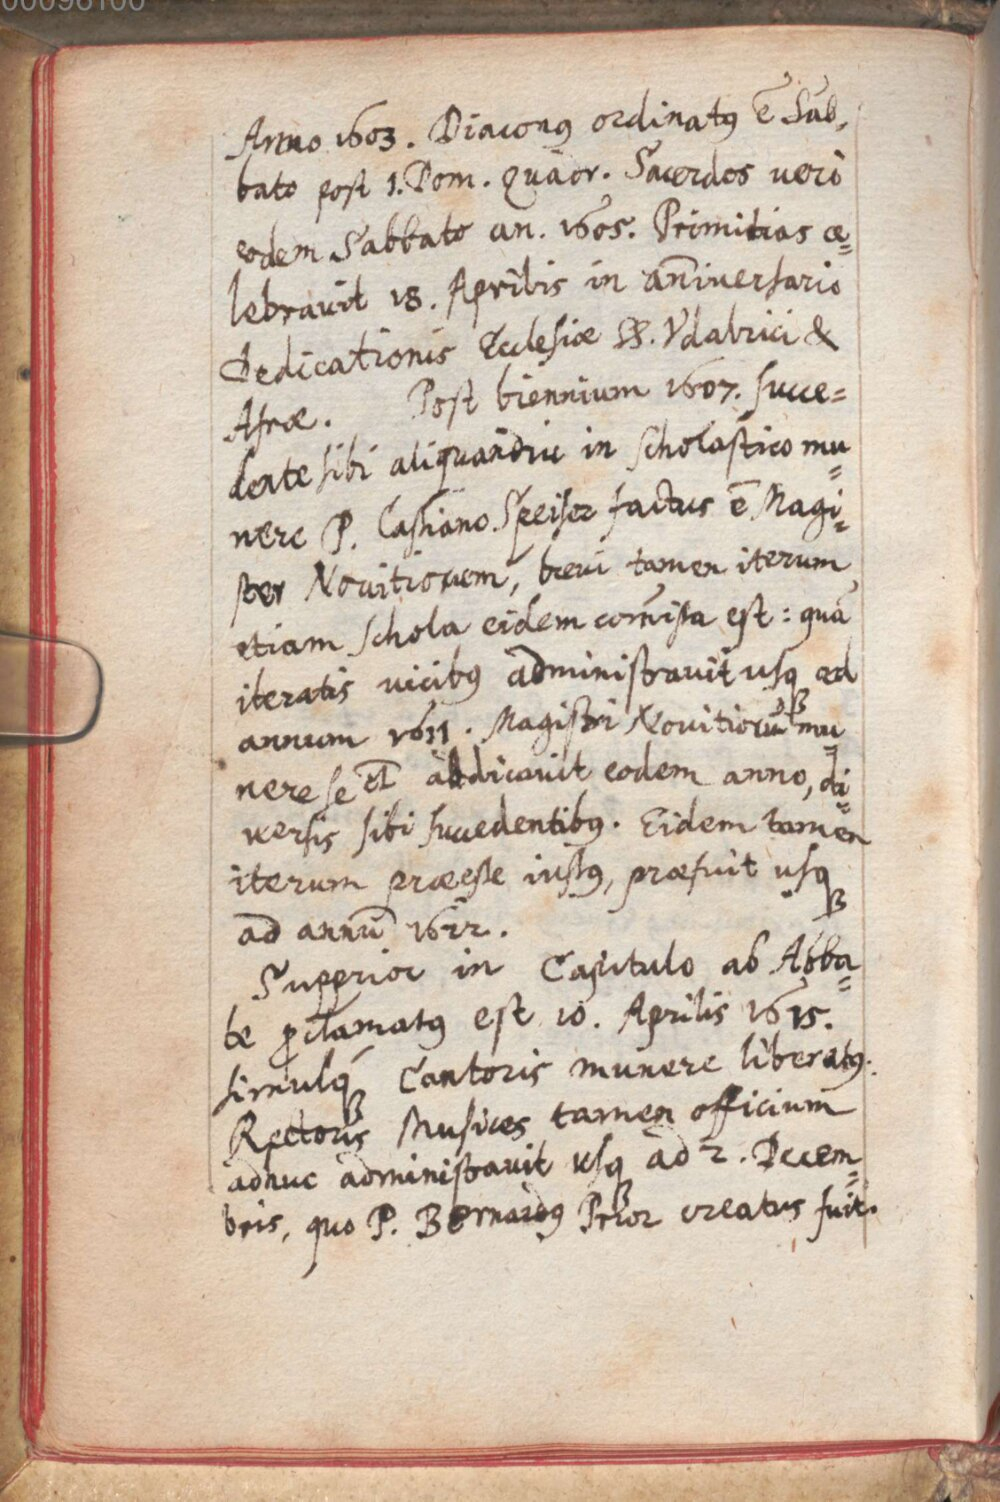 00096100
Anno 1603. Diaconꝰ ordinatꝰ ē Sab,
bato post 1. Dom. Quăor. Sacerdos verò
eodem Sabbato an. 1605. Primitias ce=
lebravit 18. Aprilis in an̄iversario
Dedicationis Ecclesiæ SS. Vdalrici &
Afræ. Post biennium 1607. succe=
dente sibi aliquandiu in scholastico mu=
nere P. Cassiano Speiser factus ē Magi=
ster Novitiorum, brevi tamen iterum
etiam schola eidem com̄issa est: quā
iteratis vicibꝰ administravit usqꝫ ad
annum 1611. Magistri Novitiorū mu=
nere se et abdicavit eodem anno, di=
versis sibi succedentibꝰ. Eidem tamen
iterum præesse iussꝰ, præfuit usqꝫ
ad annū 1622.
Supprior in Capitulo ab Abba=
te ꝓclamatꝰ est 10. Aprilis 1615.
simulqꝫ Cantoris munere liberatꝰ.
Rectoris Musices tamen officium
adhuc administravit usqꝫ ad 2. Decem=
bris, quo P. Bernardꝰ Prior creatus fuit.